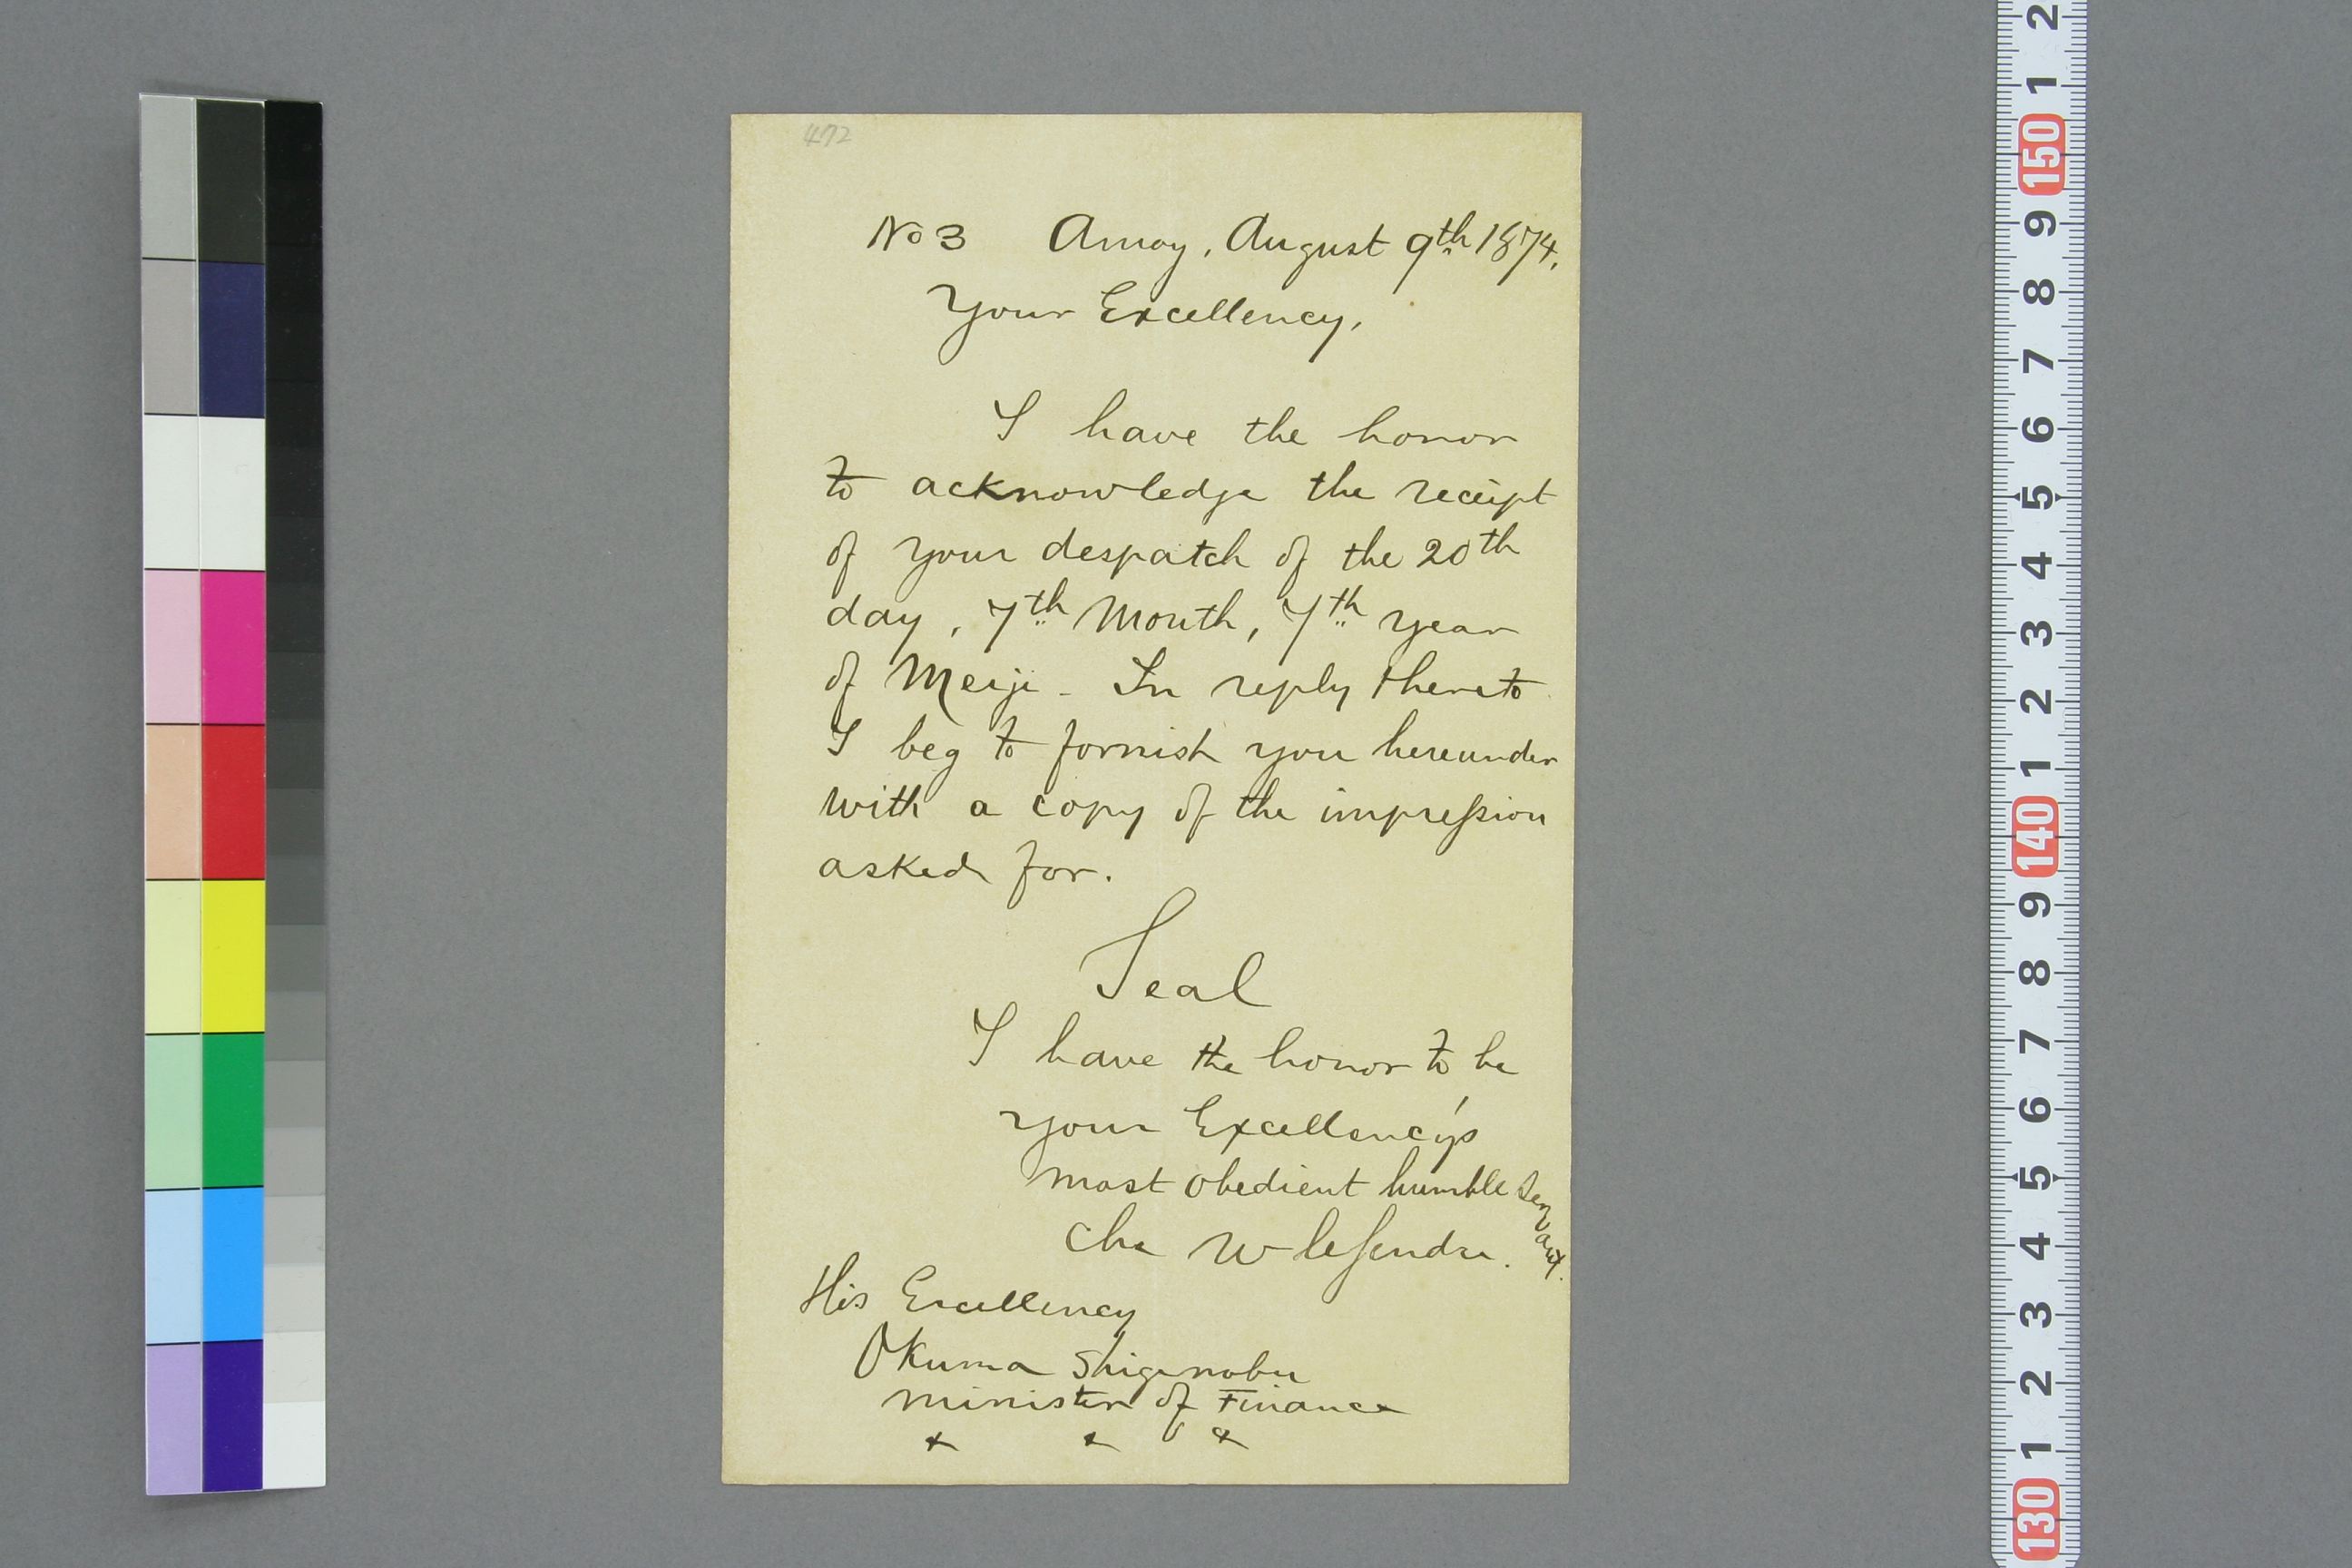 472
No 3 Amoy, August 9th 1874.
Your Excellency,
I have the honor
to acknowledge the receipt
of your despatch of the 20th
day, 7th Month, 7th year
of Meiji - In reply thereto
I beg to fornish you hereunder
with a copy of the impression
asked for.
Seal
I have the honor to be
your Excellency's
most obedient humble servant.
Cha W LeGendre.
His Excellency
Okuma Shigenobu
minister of Finance
& & &
2
1
150
9
8
7
6
5
4
3
2
1
140
9
8
7
6
5
4
3
2
1
130